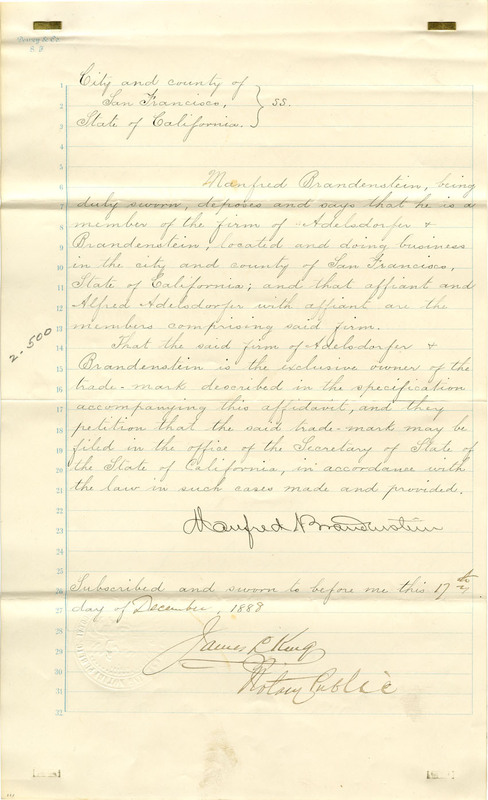 Dewey & Co.
S.F.
City and county of
San Francisco, } ss.
State of California.
Manfred Brandenstein, being
duly sworn, deposes and says that he is a
member of the firm of Adelsdorfer &
Brandenstein, located and doing business
in the city and county of San Francisco,
State of California; and that affiant and
Alfred Adelsdorfer with affiant are the
members comprising said firm.
2-500
That the said firm of Adelsdorfer &
Brandenstein is the exclusive owner of the
trade-mark described in the specification
accompanying this affidavit, and they
petition that the said trade-mark may be
filed in the office of the Secretary of State of
the State of California, in accordance with
the law in such cases made and provided.
Manfred Brandenstein
Subscribed and sworn to before me this 17th
day of December, 1888
James L King
Notary Public
1
2
3
4
5
6
7
8
9
10
11
12
13
14
15
16
17
18
19
20
21
22
23
24
25
26
27
28
29
30
31
32